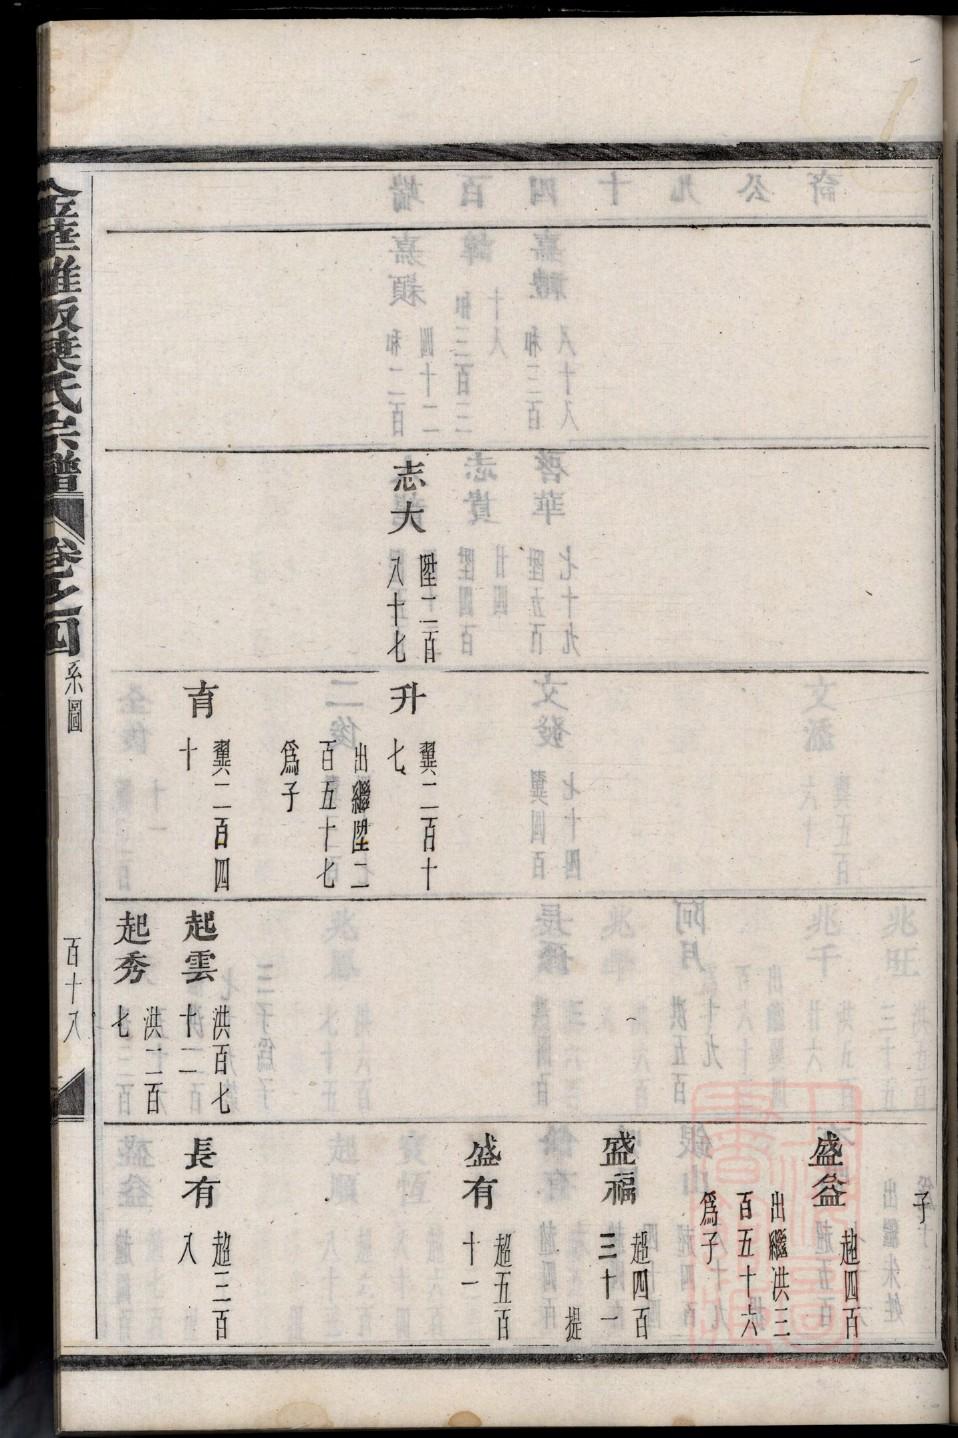 志大
陞二百
八十七
升
翼二百十
七
出繼陞二
百五十七
爲子
育
翼二百四
十
起雲
洪百七
十二
起秀
洪二百
七
子
盛益
超四百
出繼洪三
百五十六
爲子
盛福
超四百
三十一
提
盛有
超五百
十一
長有
超三百
八
葉氏宗譜
卷之四
系圖
百十八